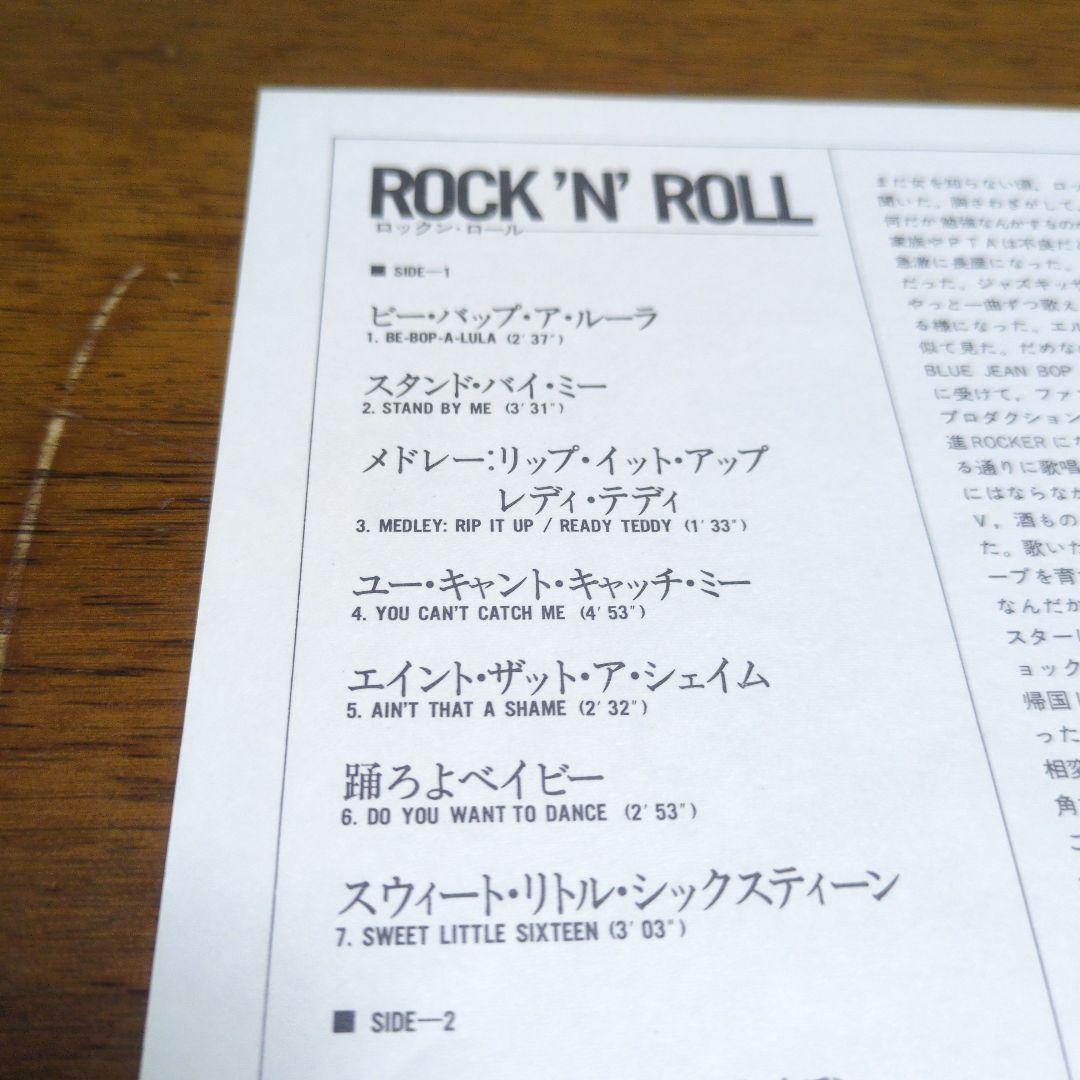 ROCK 'N' ROLL
ロックン・ロール
■ SIDE—1
ビー・バップ・ア・ルーラ
1. BE-BOP-A-LULA (2' 37")
スタンド・バイ・ミー
2. STAND BY ME (3' 31")
メドレー:リップ・イット・アップ
レディ・テディ
3. MEDLEY: RIP IT UP / READY TEDDY (1' 33")
ユー・キャント・キャッチ・ミー
4. YOU CAN'T CATCH ME (4' 53")
エイント・ザット・ア・シェイム
5. AIN'T THAT A SHAME (2' 32")
踊ろよベイビー
6. DO YOU WANT TO DANCE (2' 53")
スウィート・リトル・シックスティーン
7. SWEET LITTLE SIXTEEN (3' 03")
■ SIDE—2
まだ女を知らない頃、ロッ
聞いた。胸さわぎがして、
何だか勉強なんかするのが
家族やPTAは不良だと
急激に長屋になった。
だった。ジャズキッサ
やっと一曲ずつ歌え
る様になった。エル
似て見た。だめなの
BLUE JEAN BOP
に受けて。ファ
プロダクション
進ROCKERにな
る通りに歌唱
にはならなか
V。酒もの
た。歌いた
ープを育
なんだか
スター
ョック
帰国し
った
相変
角